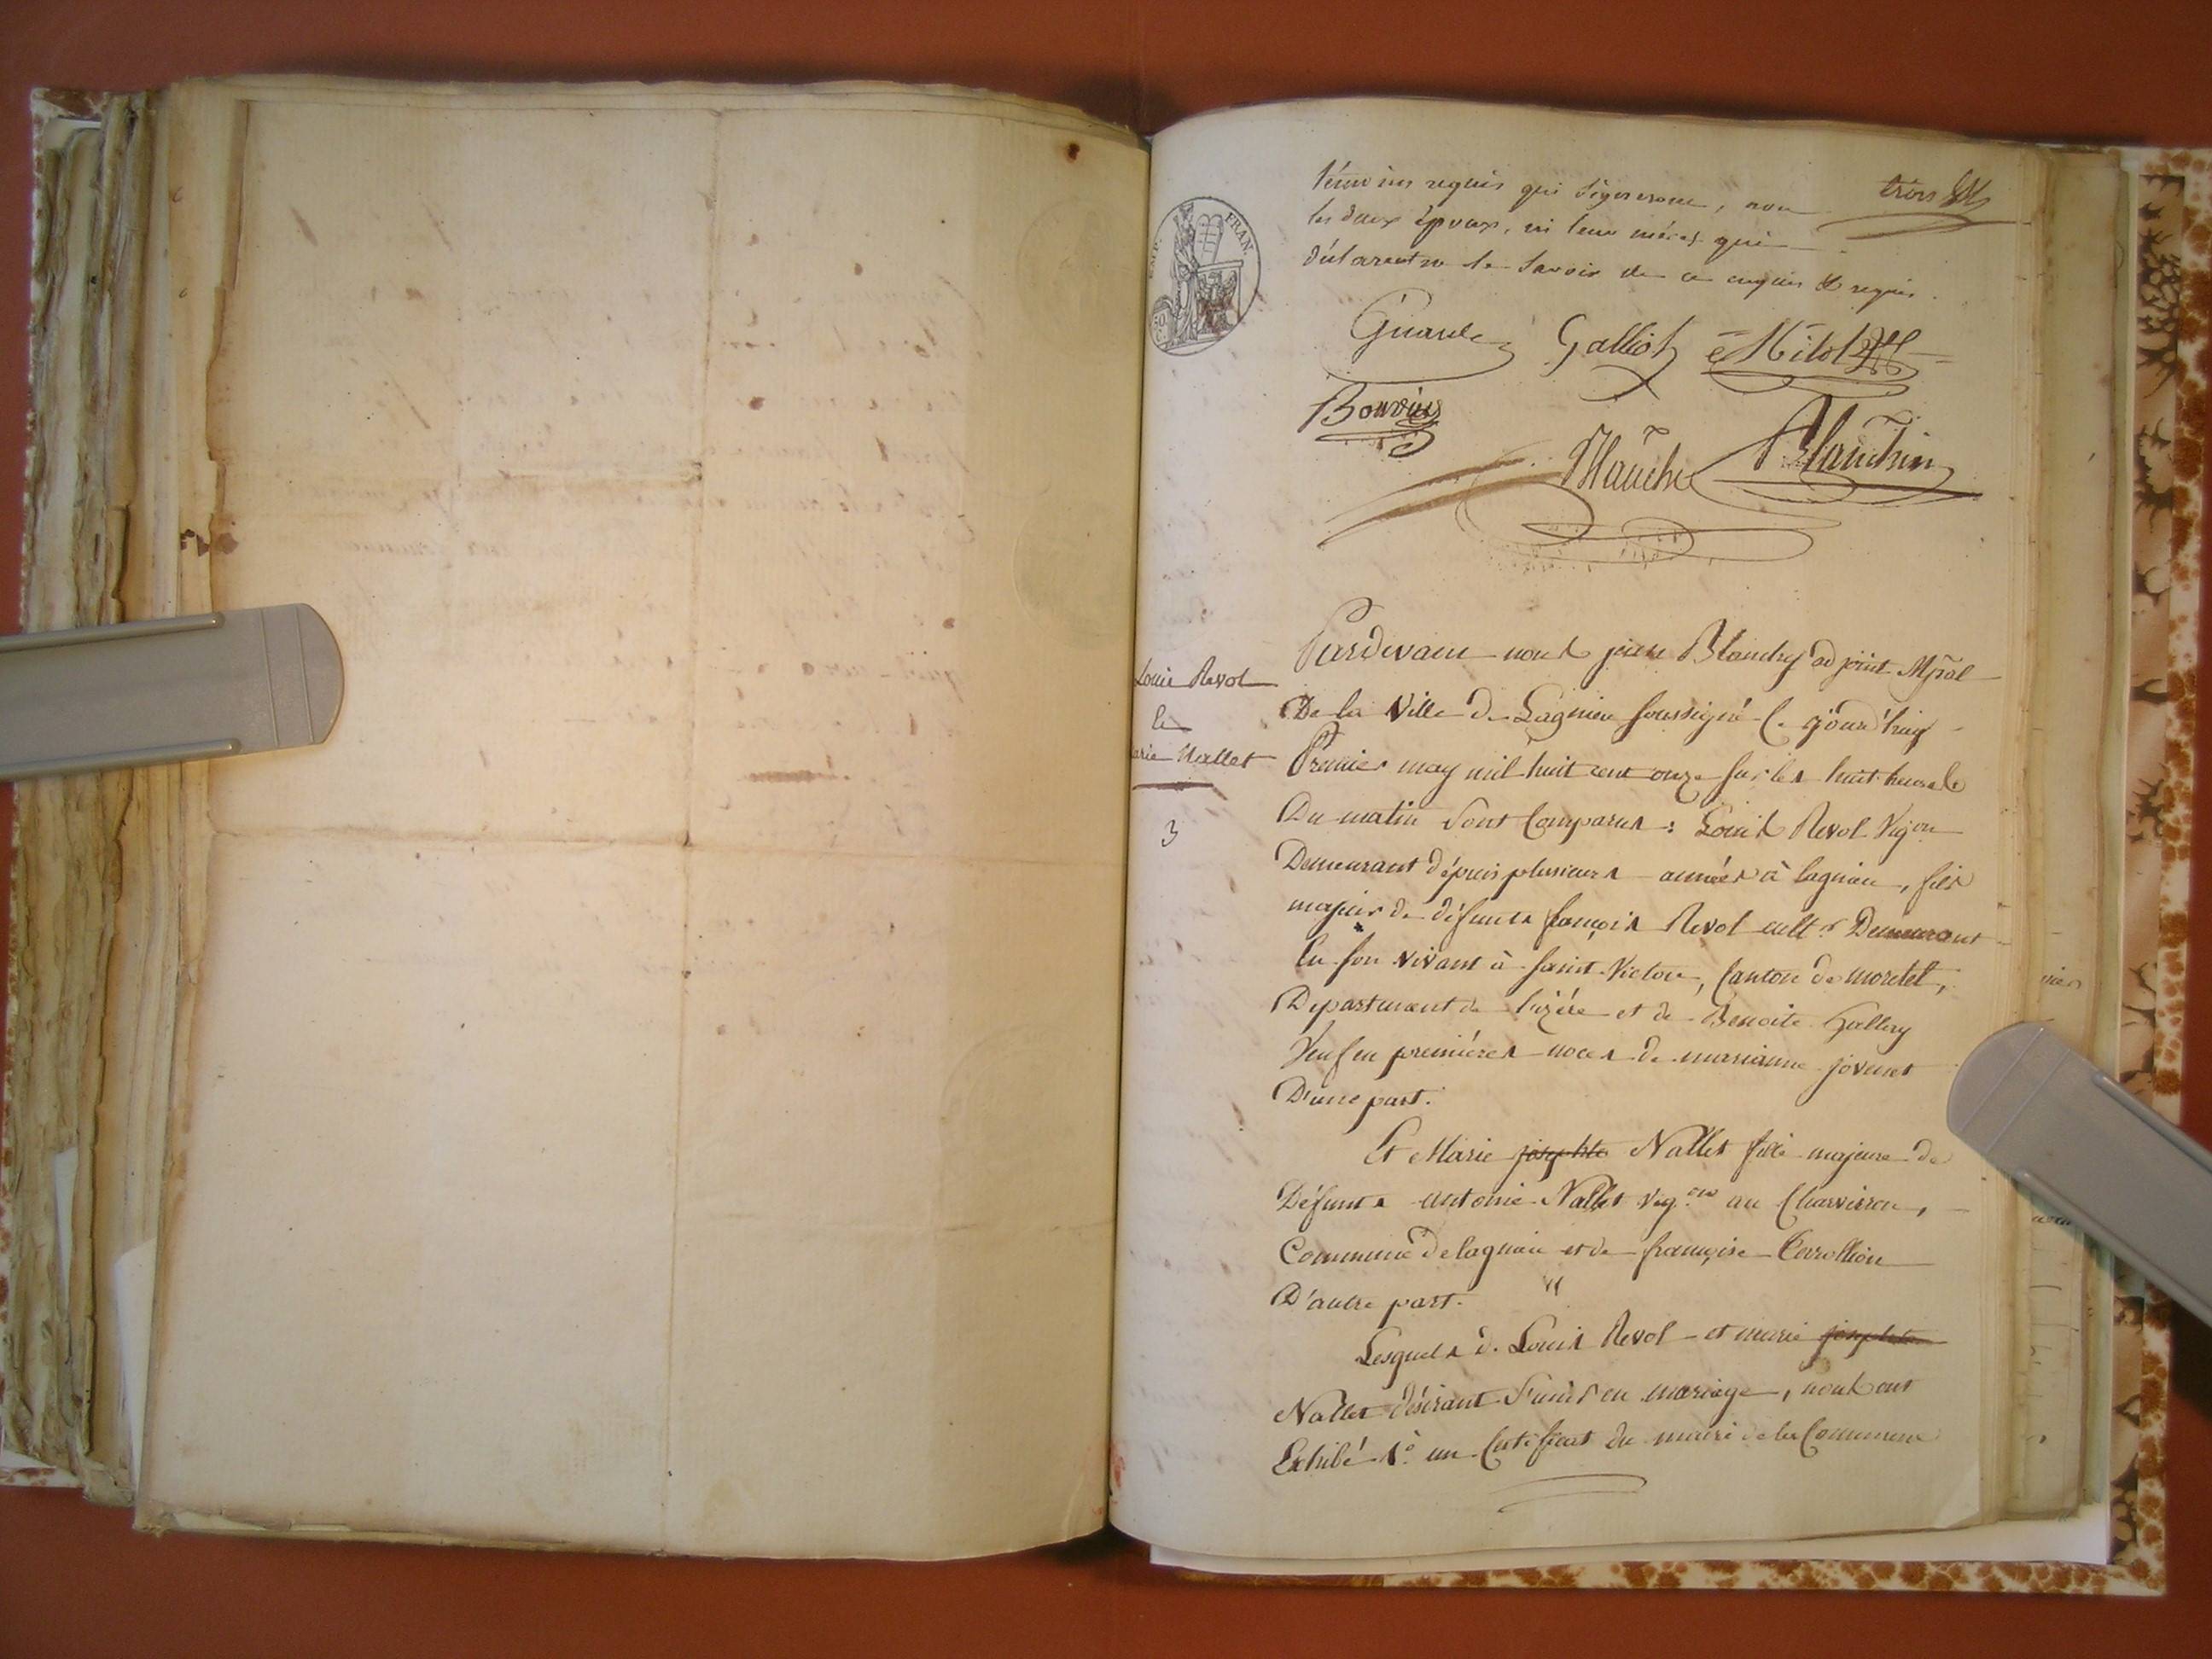 témoins requis qui signerons, non
trois
les deux époux, ni leur mères qui
déclarent ne le savoir de ce enquis & requis.
EMP. FRAN.
50
Guard
Galliot
Bouvier
Blanche
Blanchin
Louis Revol
&
Marie Nallet
3
Pardevant nous pierre Blanchy adjoint Mpal
De la Ville de Lagnieu soussigné Ce jourd'huy
Premier may mil huit cent onze sur les huit heures
Du matin Sont Comparus : Louis Revol Vigon
Demeurant dépuis plusieurs années à lagnieu, fils
majeur de défunts françois Revol cultr Demeurant
En son vivant à saint Victor, Canton de moretel,
Département de l'izére et de Benoite Gallay
Veuf en premières noces de marianne jovenet
D'une part.
Et Marie josephte Nallet fille majeure de
Défunt antoine Nallet vigon au Charviron,
Commune de lagnieu et de françoise Carrollion
D'autre part.
Lesquels d. Louis Revol et marie josephte
Nallet désirant s'unir en mariage, nous ont
Exhibé 1o un Certificat du maire de la Commune